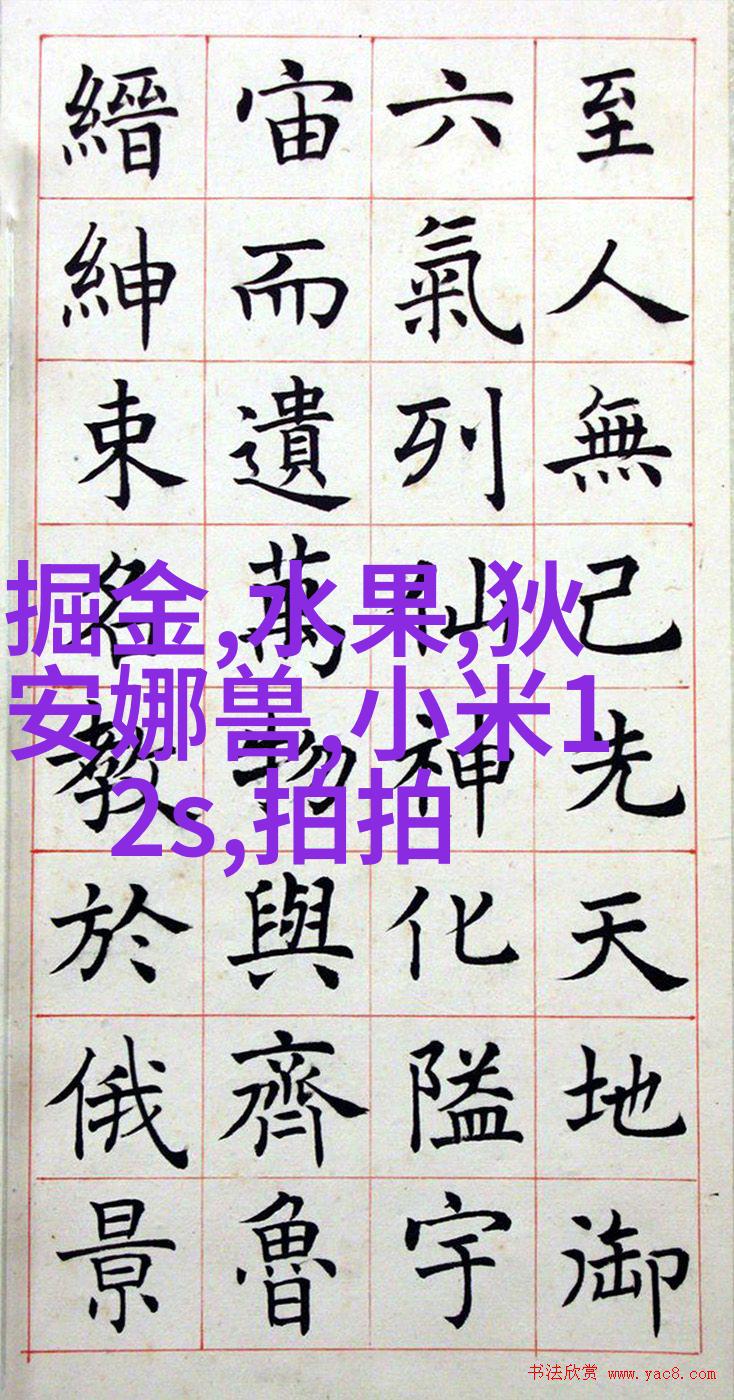 至人無己先天地御
六氣列仙神化隘宇
宙而遺萬物與齊魯
縉紳束名教於俄景
掘金,水果,狄
安娜兽,小米1
2s,拍拍
书法欣赏 www.yac8.com